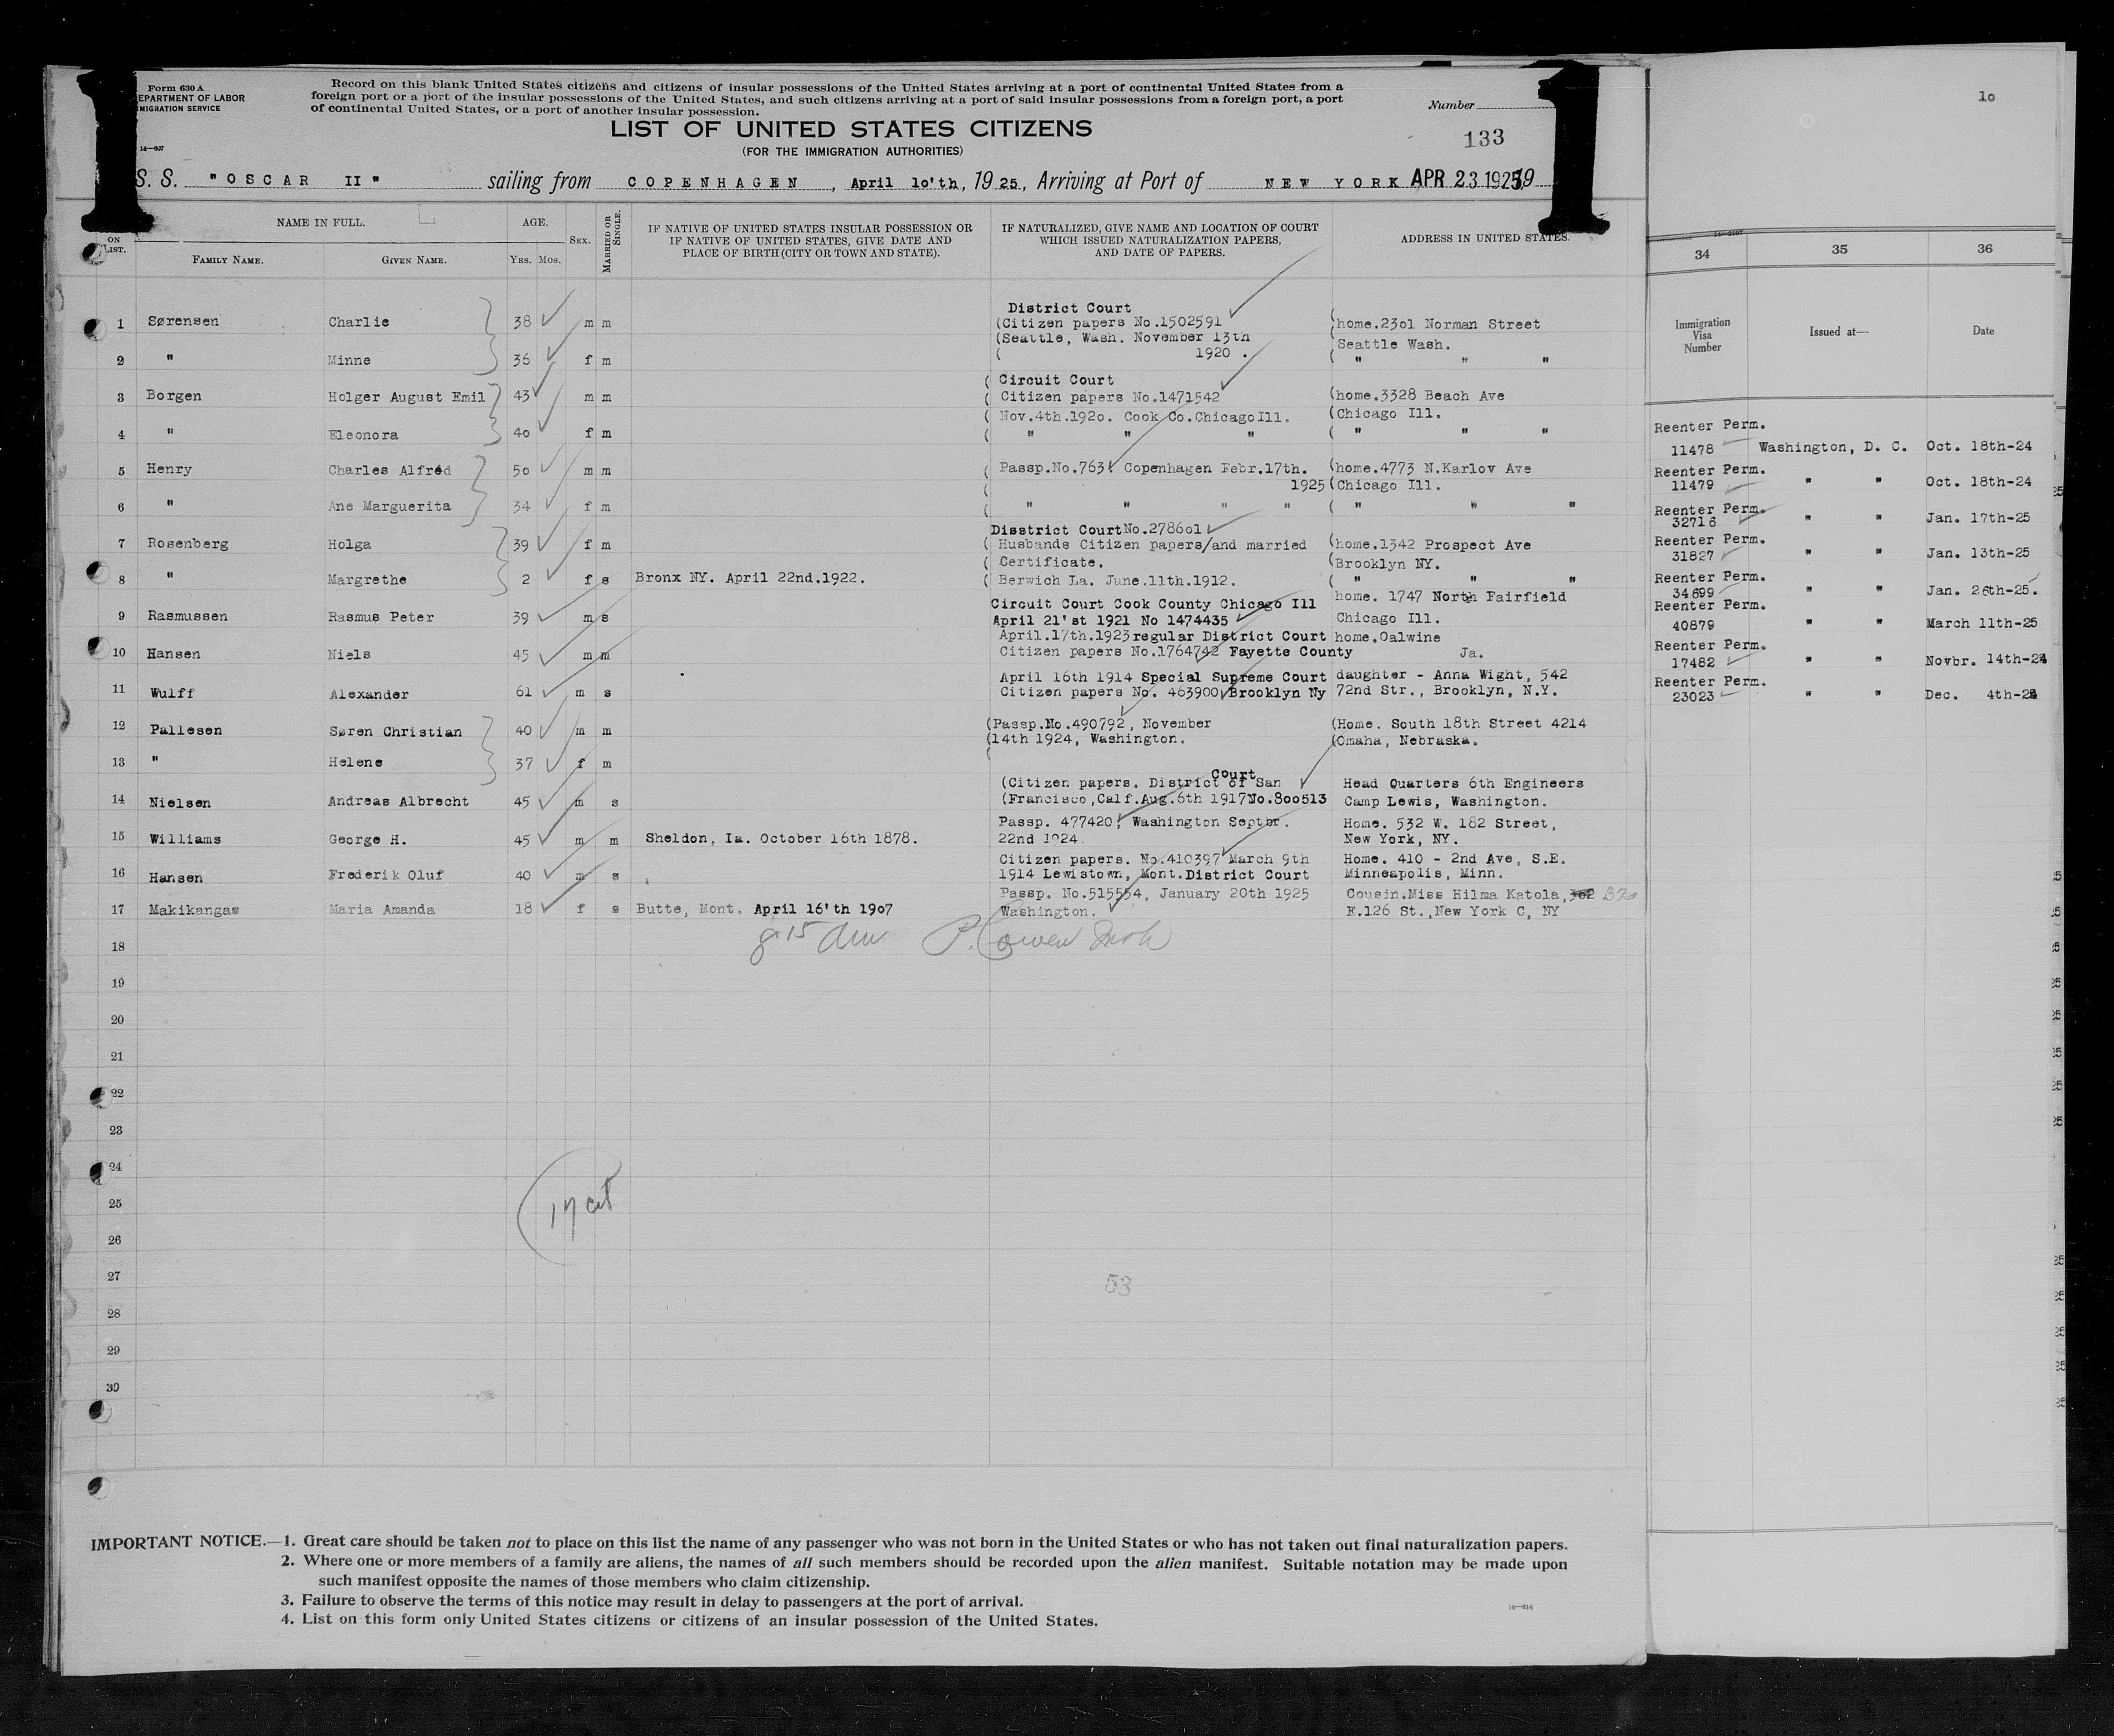 Form 630 A
EPARTMENT OF LABOR
MIGRATION SERVICE
14—607
Record on this blank United States citizens and citizens of insular possessions of the United States arriving at a port of continental United States from a
foreign port or a port of the insular possessions of the United States, and such citizens arriving at a port of said insular possessions from a foreign port, a port
of continental United States, or a port of another insular possession.
LIST OF UNITED STATES CITIZENS
(FOR THE IMMIGRATION AUTHORITIES)
Number
133
S. S. "OSCAR II" sailing from COPENHAGEN, April 1o'th, 19 25, Arriving at Port of NEW YORK APR 23 1925 19
ON LIST. NAME IN FULL. AGE. SEX. MARRIED OR SINGLE. IF NATIVE OF UNITED STATES INSULAR POSSESSION OR IF NATIVE OF UNITED STATES, GIVE DATE AND PLACE OF BIRTH (CITY OR TOWN AND STATE). IF NATURALIZED, GIVE NAME AND LOCATION OF COURT WHICH ISSUED NATURALIZATION PAPERS, AND DATE OF PAPERS. ADDRESS IN UNITED STATES.
FAMILY NAME. GIVEN NAME. YRS. MOS.
District Court
1 Sørensen Charlie 38 m m (Citizen papers No.1502591 (home.23o1 Norman Street
(Seattle, Wash. November 13th Seattle Wash.
2 " Minne 36 f m ( 1920 . ( " " "
( Circuit Court
3 Borgen Holger August Emil 43 m m ( Citizen papers No.1471542 (home.3328 Beach Ave
( Nov.4th.192o. Cook Co.ChicagoIll. (Chicago Ill.
4 " Eleonora 4o f m ( " " " ( " " "
5 Henry Charles Alfred 5o m m ( Passp.No.763 Copenhagen Febr.17th. (home.4773 N.Karlov Ave
( 1925 (Chicago Ill.
6 " Ane Marguerita 34 f m ( " " " " ( " " "
Disstrict CourtNo.2786o1
7 Rosenberg Holga 39 f m ( Husbands Citizen papers/and married (home.1342 Prospect Ave
( Certificate. (Brooklyn NY.
8 " Margrethe 2 f s Bronx NY. April 22nd.1922. ( Berwich La. June.11th.1912. ( " " "
home. 1747 North Fairfield
Circuit Court Cook County Chicago Ill
9 Rasmussen Rasmus Peter 39 m s April 21'st 1921 No 1474435 Chicago Ill.
April.17th.1923 regular District Court home.Oalwine
10 Hansen Niels 45 m m Citizen papers No.1764742 Fayette County Ja.
April 16th 1914 Special Supreme Court daughter - Anna Wight, 542
11 Wulff Alexander 61 m s Citizen papers No. 463900 Brooklyn Ny 72nd Str., Brooklyn, N.Y.
12 Pallesen Søren Christian 40 m m (Passp.No.490792, November (Home. South 18th Street 4214
(14th 1924, Washington. (Omaha, Nebraska.
13 " Helene 37 f m (
Court
(Citizen papers. District of San Head Quarters 6th Engineers
14 Nielsen Andreas Albrecht 45 m s (Francisco,Calf.Aug.6th 1917No.8oo513 Camp Lewis, Washington.
Passp. 477420, Washington Septbr. Home. 532 W. 182 Street,
15 Williams George H. 45 m m Sheldon, Ia. October 16th 1878. 22nd 1924. New York, NY.
Citizen papers. No.410397 March 9th Home. 410 - 2nd Ave, S.E.
16 Hansen Frederik Oluf 40 m s 1914 Lewistown, Mont.District Court Minneapolis, Minn.
Passp. No.515554, January 20th 1925 Cousin.Miss Hilma Katola, 302 320
17 Makikangas Maria Amanda 18 f s Butte, Mont. April 16'th 19o7 Washington. E.126 St.,New York C, NY
18
19
20
21
22
23
24
25
26
27
28
29
30
17 cit
53
IMPORTANT NOTICE.—1. Great care should be taken not to place on this list the name of any passenger who was not born in the United States or who has not taken out final naturalization papers.
2. Where one or more members of a family are aliens, the names of all such members should be recorded upon the alien manifest. Suitable notation may be made upon
such manifest opposite the names of those members who claim citizenship.
3. Failure to observe the terms of this notice may result in delay to passengers at the port of arrival.
4. List on this form only United States citizens or citizens of an insular possession of the United States.
1o
34 35 36
Immigration Visa Number Issued at— Date
Reenter Perm.
11478 Washington, D. C. Oct. 18th-24
Reenter Perm.
11479 " " Oct. 18th-24
Reenter Perm.
32716 " " Jan. 17th-25
Reenter Perm.
31827 " " Jan. 13th-25
Reenter Perm.
34699 " " Jan. 26th-25.
Reenter Perm.
40879 " " March 11th-25
Reenter Perm.
17482 " " Novbr. 14th-24
Reenter Perm.
23023 " " Dec. 4th-24